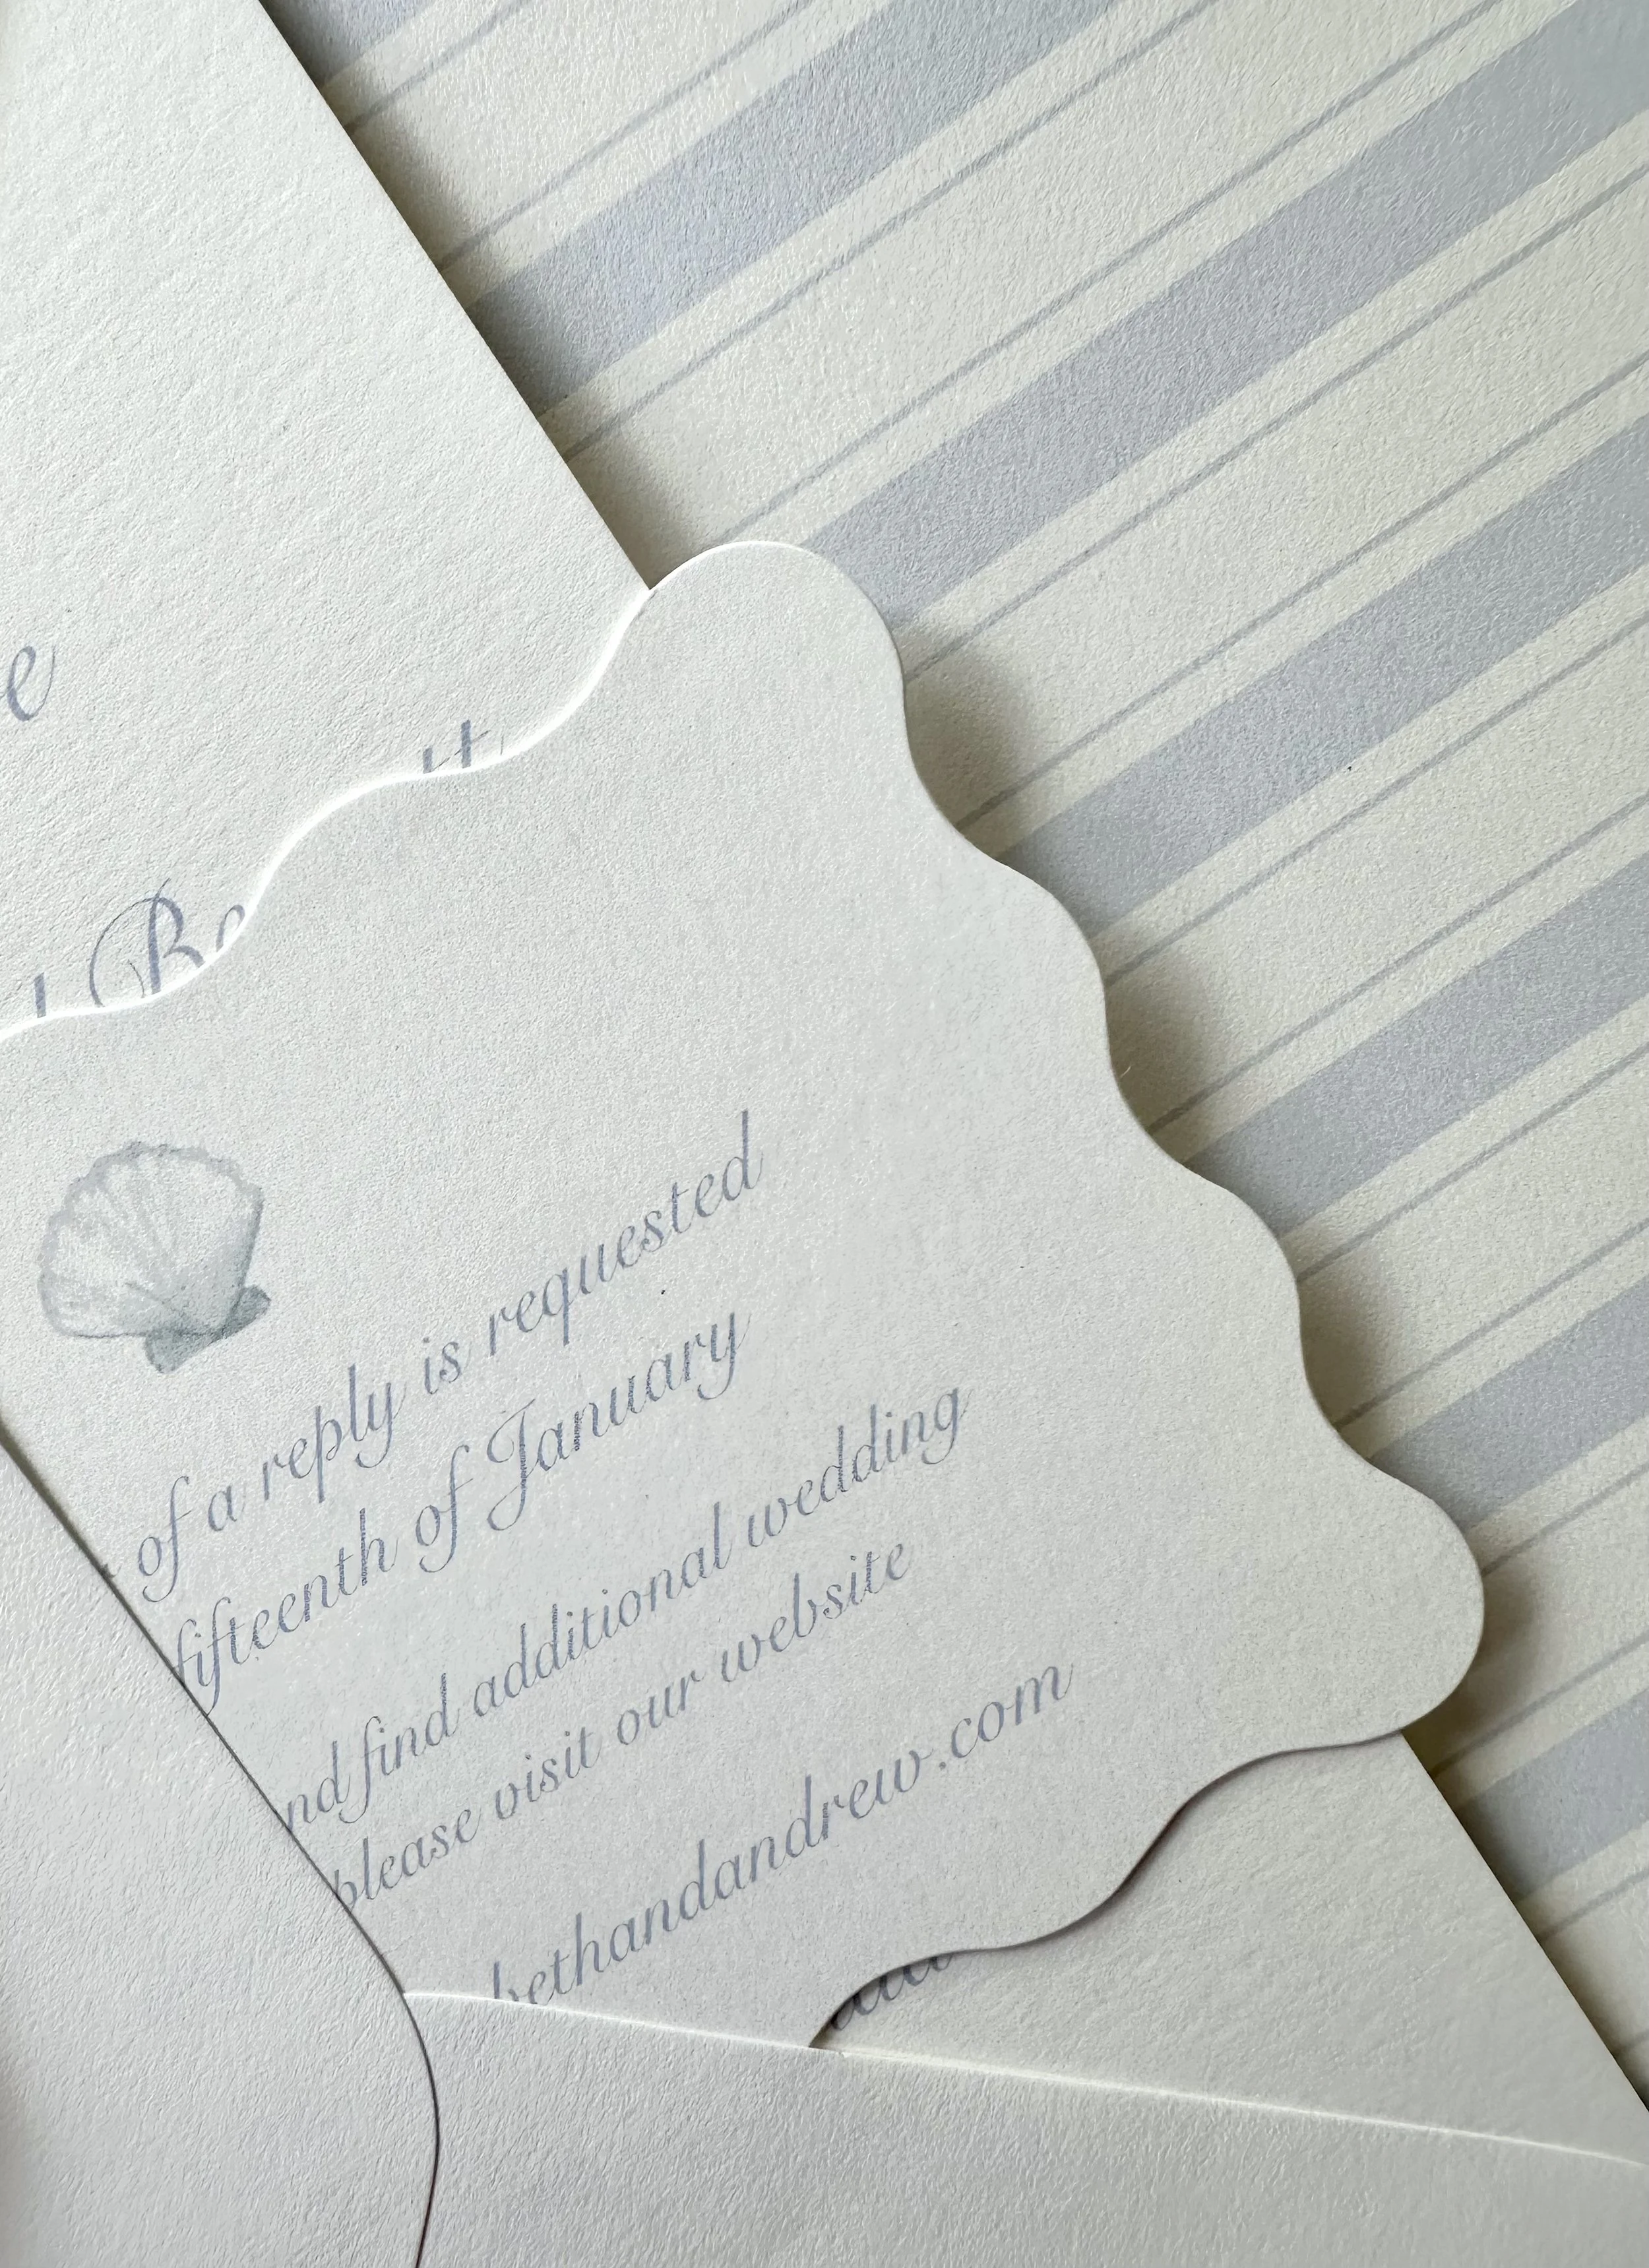 of a reply is requested
fifteenth of January
find additional wedding
please visit our website
bethandandrew.com